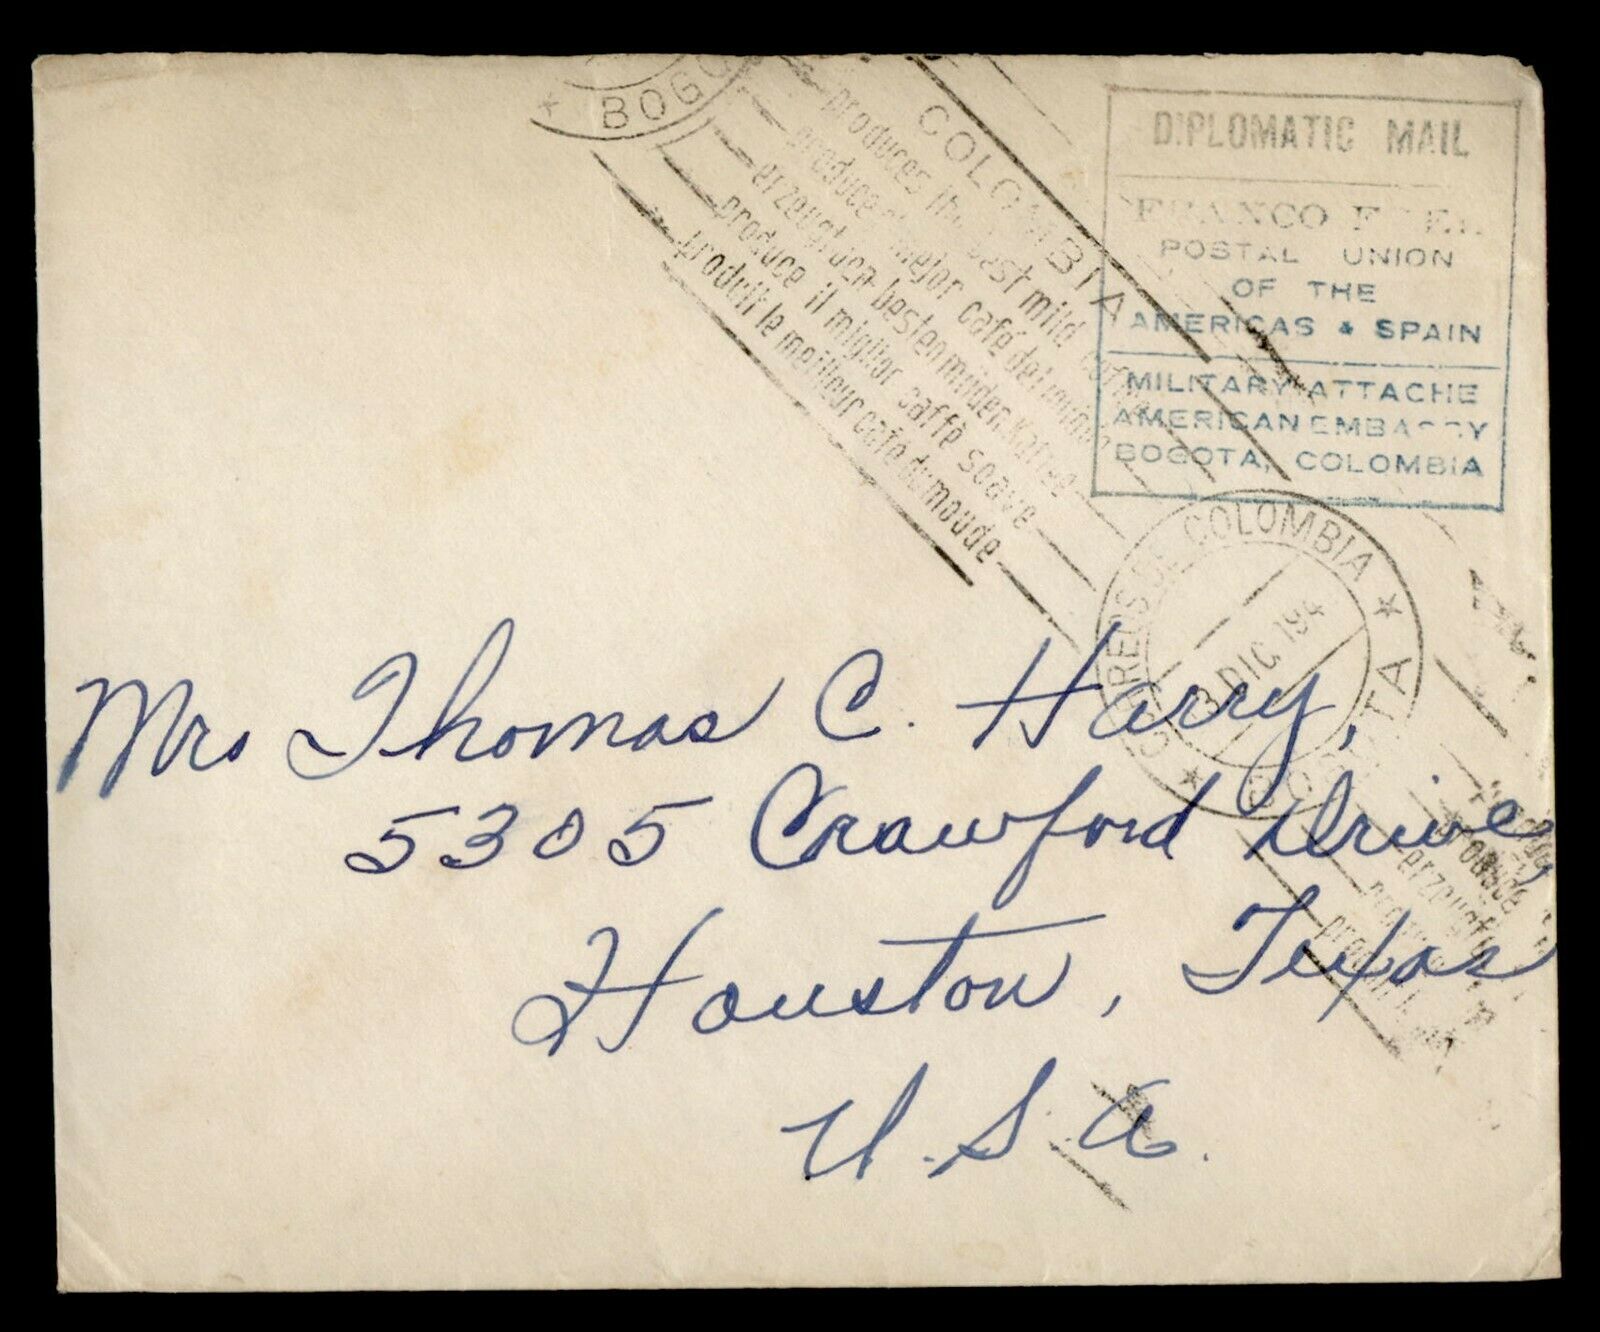 BOGO
COLOMBIA
produces the best mild coffee
produce el mejor café del mundo
erzeugt den besten milden Kaffee
produce il miglior caffè soave
produit le meilleur café du moude
DIPLOMATIC MAIL
FRANCO FREE
POSTAL UNION
OF THE
AMERICAS & SPAIN
MILITARY ATTACHE
AMERICAN EMBASSY
BOGOTA, COLOMBIA
CORREOS DE COLOMBIA
3 DIC 194
BOGOTA
Mrs Thomas C. Harry,
5305 Crawford Drive,
Houston, Texas
U.S.A.
produce
erzeugt